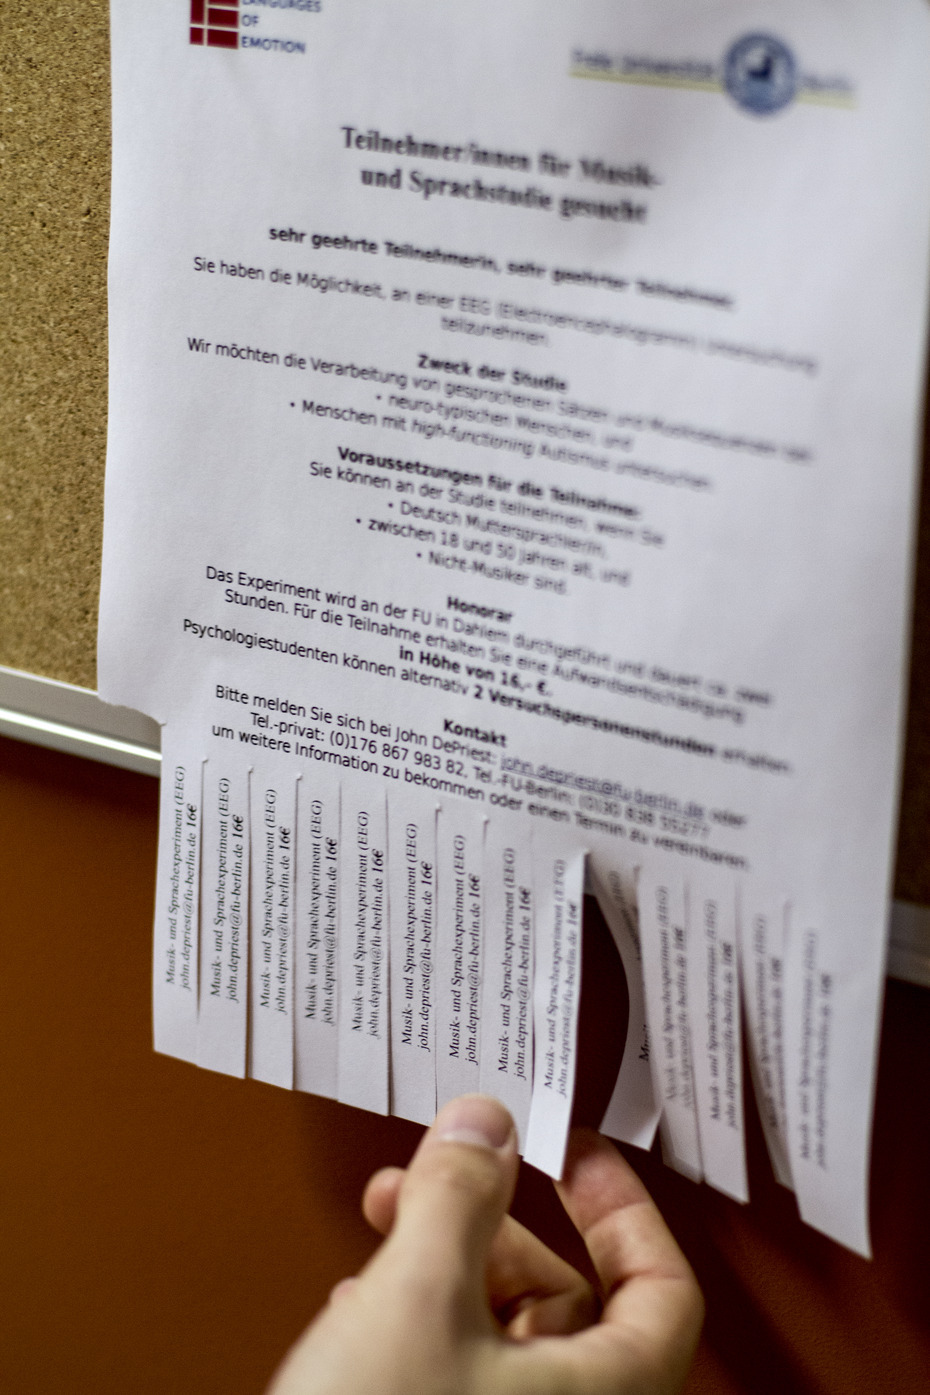 LANGUAGES
OF
EMOTION
Freie Universität Berlin
Teilnehmer/innen für Musik-
und Sprachstudie gesucht
sehr geehrte Teilnehmerin, sehr geehrter Teilnehmer,
Sie haben die Möglichkeit, an einer EEG (Electroencephalogramm) Untersuchung
teilzunehmen.
Zweck der Studie
Wir möchten die Verarbeitung von gesprochenen Sätzen und Musiksequenzen
• neuro-typischen Menschen, und
• Menschen mit high-functioning Autismus untersuchen.
Voraussetzungen für die Teilnahme:
Sie können an der Studie teilnehmen, wenn Sie
• Deutsch MuttersprachlerIn,
• zwischen 18 und 50 Jahren alt, und
• Nicht-Musiker sind.
Honorar
Das Experiment wird an der FU in Dahlem durchgeführt und dauert ca. zwei
Stunden. Für die Teilnahme erhalten Sie eine Aufwandsentschädigung
in Höhe von 16,- €.
Psychologiestudenten können alternativ 2 Versuchspersonenstunden erhalten.
Kontakt
Bitte melden Sie sich bei John DePriest: john.depriest@fu-berlin.de oder
Tel.-privat: (0)176 867 983 82, Tel.-FU-Berlin: (0)30 838 55277
um weitere Information zu bekommen oder einen Termin zu vereinbaren.
Musik- und Sprachexperiment (EEG)
john.depriest@fu-berlin.de 16€
Musik- und Sprachexperiment (EEG)
john.depriest@fu-berlin.de 16€
Musik- und Sprachexperiment (EEG)
john.depriest@fu-berlin.de 16€
Musik- und Sprachexperiment (EEG)
john.depriest@fu-berlin.de 16€
Musik- und Sprachexperiment (EEG)
john.depriest@fu-berlin.de 16€
Musik- und Sprachexperiment (EEG)
john.depriest@fu-berlin.de 16€
Musik- und Sprachexperiment (EEG)
john.depriest@fu-berlin.de 16€
Musik- und Sprachexperiment (EEG)
john.depriest@fu-berlin.de 16€
Musik- und Sprachexperiment (EEG)
john.depriest@fu-berlin.de 16€
Musik- und Sprachexperiment (EEG)
john.depriest@fu-berlin.de 16€
Musik- und Sprachexperiment (EEG)
john.depriest@fu-berlin.de 16€
Musik- und Sprachexperiment (EEG)
Musik- und Sprachexperiment (EEG)
john.depriest@fu-berlin.de 16€